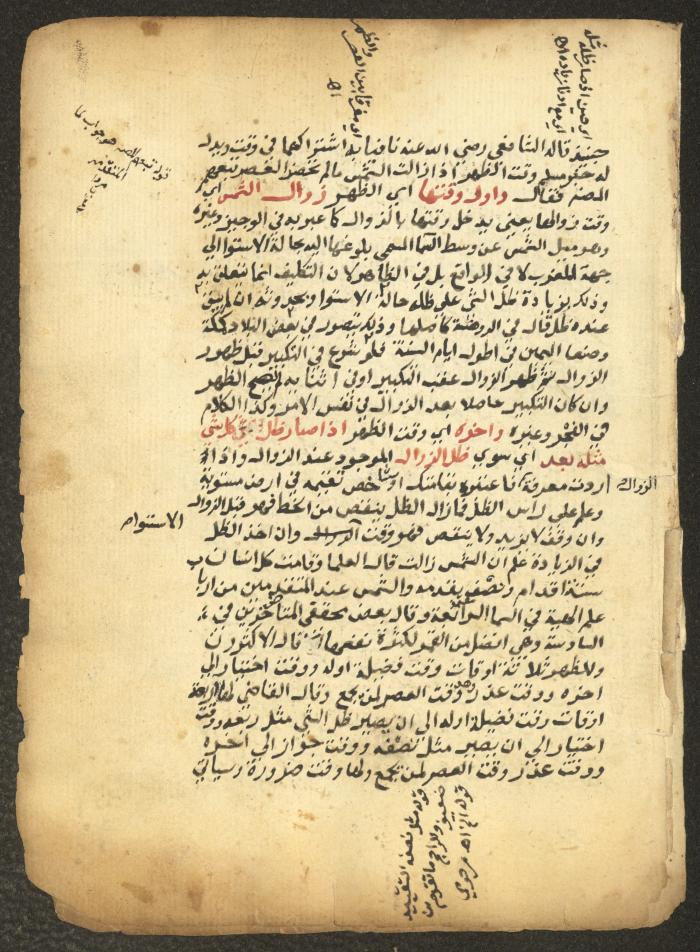 حينئذ قاله الشافعي رضي الله عنه نافيا به اشتراكهما في وقت ويدل
له خبر مسلم وقت الظهر اذا زالت الشمس مالم تحضر العصر تبعهم
المصنف فقال واول وقتها اي الظهر زوال الشمس اي
وقت زوالها يعني يدخل وقتها بالزوال كما عبر به في الوجيز وغيره
وهو ميل الشمس عن وسط السما المسمى بلوغها اليه بحالة الاستوا الي
جهة المغرب لا في الواقع بل في الظاهر لان التكليف انما يتعلق به
وذلك بزيادة ظل الشي علي ظله حالة الاستوا وبحدوثه ان لم يبق
عنده ظل قال في الروضة كاصلها وذلك يتصور في بعض البلاد كمكة
وصنعا اليمن في اطول ايام السنة فلو شرع في التكبير قبل ظهور
الزوال ثم ظهر الزوال عقب التكبير او في اثنايه لم يصح الظهر
وان كان التكبير حاصلا بعد الزوال في نفس الامر وكذا الكلام
في الفجر وغيره واخره اي وقت الظهر اذا صار ظل كل شي
مثله بعد اي سوي ظل الزوال الموجود عند الزوال واذا
اردت معرفة الزوال فاعتبره بقامتك او شاخص تقيمه في ارض مستوية
وعلم علي راس الظل فما زال الظل ينقص من الخط فهو قبل الزوال
وان وقف لا يزيد ولا ينقص فهو وقت الاستواء وان اخذ الظل
في الزيادة علم ان الشمس زالت قال العلما وقامت كل انسان
ستة اقدام ونصف بقدمه والشمس عند المتقدمين من ارباب
علم الهيية في السما الرابعة وقال بعض محققي المتاخرين في
السادسة وهي افضل من القمر لكثرة نفعها قال الاكثرون
وللظهر ثلاثة اوقات وقت فضيلة اوله ووقت اختيار الي
اخره ووقت عذر وقت العصر لمن يجمع وقال القاضي لها اربعة
اوقات وقت فضيلة اوله الي ان يصير ظل الشي مثل ربعه ووقت
اختيار الي ان يصير مثل نصفه ووقت جواز الي اخره
ووقت عذر وقت العصر لمن يجمع ولها وقت ضرورة وسياتي